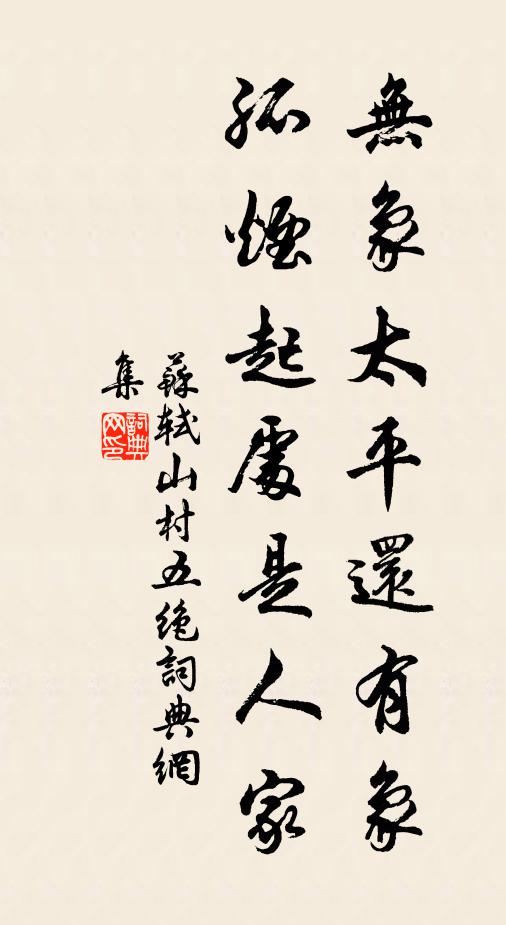 無象太平還有象
孤煙起處是人家
蘇軾山村五絶詞典網
集
詞典
网印